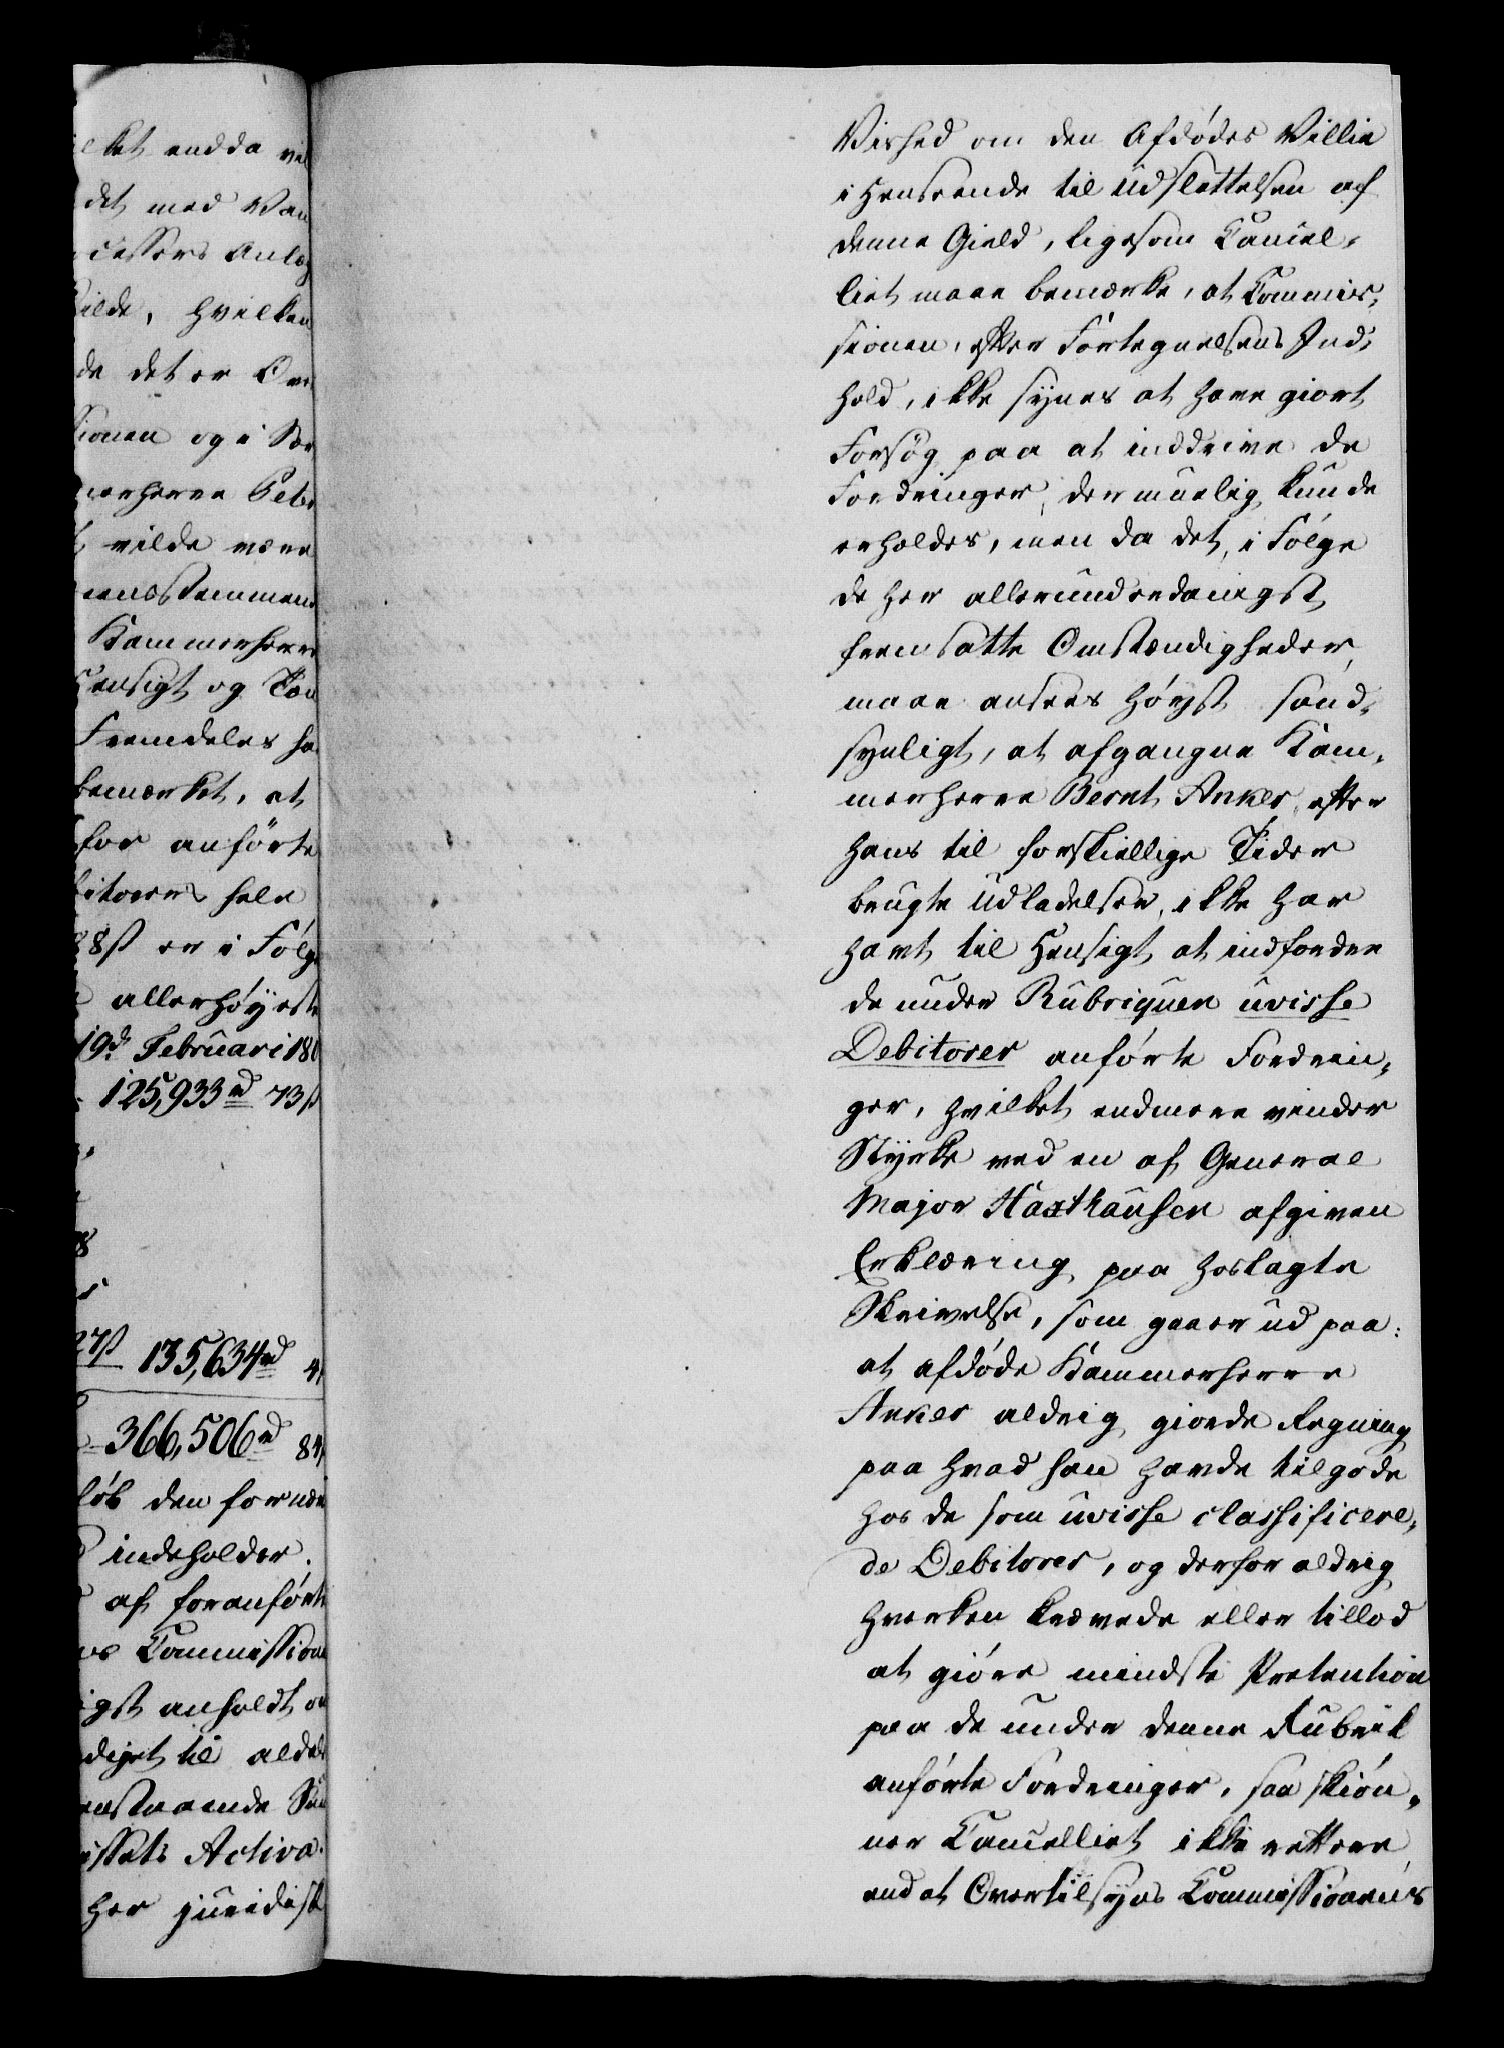 lket endda vil
det med Van
cessers Anlæg
ilde, hvilken
de det er Ove
sionen og i Sær
merherre Pete
vilde være
eensstemmen
Kammerherre
Hensigt og Tæn
Fremdeles ha
bemærket, at
for anførte
bitorers hele
88ß er i Følge
allerhøyeste
19d Februari 180
125,933 rd 73ß
8
27ß 135,634 rd 4
366,506 rd 84
løb den fornæv
indeholder.
af foranførte
Commission
igst anholdt om
diget til aldel
enstaaende Sum
issets Activa.
her juridisk
Vished om den Afdødes Villie
i Henseende til Udslettelsen af
denne Gield, ligesom Cancel-
liet maae bemærke, at Commis-
sionen, efter Fortegnelsens Ind-
hold, ikke synes at have giort
Forsøg paa at inddrive de
Fordringer, der muelig kunde
erholdes, men da det, i Følge
de her allerunderdanigst
fremsatte Omstændigheder,
maae ansees høyst sand-
synligt, at afgangne Kam-
merherre Bernt Anker, efter
hans til forskiellige Tider
brugte Udladelser, ikke har
havt til Hensigt at indfordre
de under Rubriquen uvisse
Debitorer anførte Fordrin-
ger, hvilket endmere vinder
Styrke ved en af General
Major Haxthausen afgiven
Erklæring paa hoslagte
Skrivelse, som gaaer ud paa:
at afdøde Kammerherre
Anker aldrig giorde Regning
paa hvad han havde tilgode
hos de som uvisse classificere-
de Debitorer, og derfor aldrig
hverken krævede eller tillod
at giøre mindste Prætention
paa de under denne Rubrik
anførte Fordringer, saa skiøn-
ner Cancelliet ikke rettere,
end at Overtilsyns Commissionens